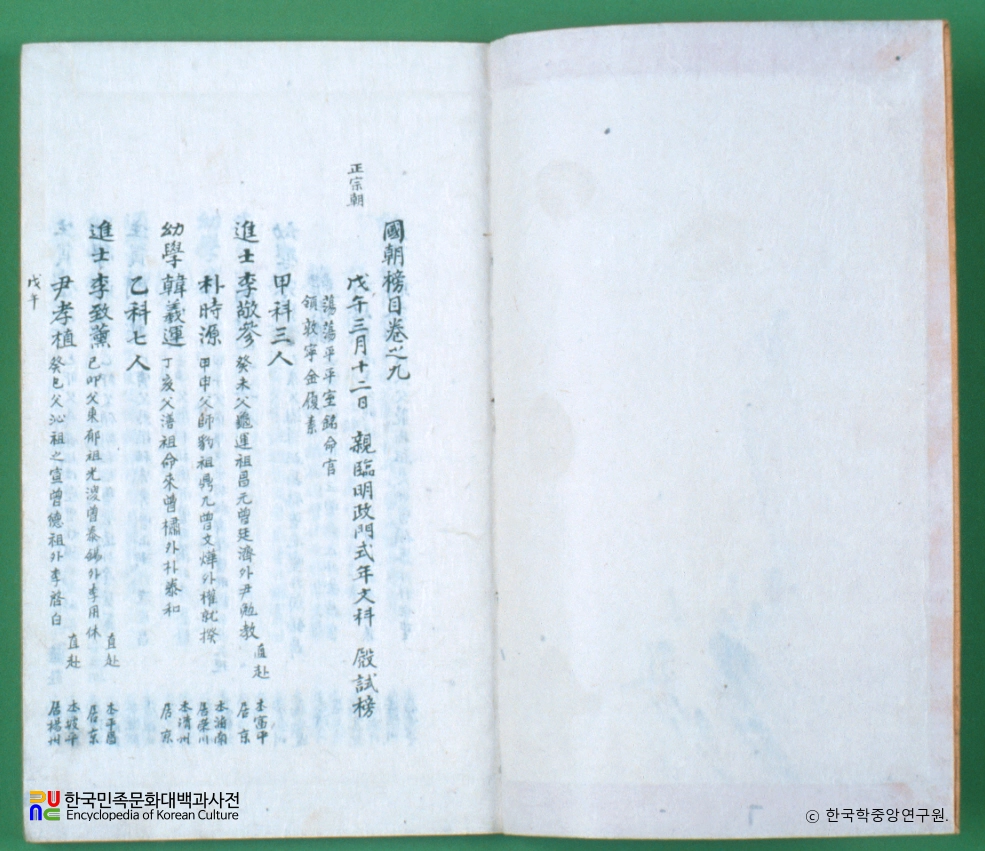 國朝榜目卷之九
正宗朝
戊午三月十二日 親臨明政門式年文科 殿試榜
蕩蕩平平室銘命官
領敦寧金履素
甲科三人
進士李敬參 癸未父龜運祖昌元曾廷濟外尹勉教 直赴 本富平 居京
朴時源 甲申父師豹祖鼎九曾文燁外權就揆 本潘南 居榮川
幼學韓義運 丁亥父潽祖命來曾橚外朴泰和 本淸州 居京
乙科七人
進士李致薰 己卯父東郁祖光溭曾泰錫外李用休 直赴 本平昌 居京
尹孝植 癸巳父沁祖之宣曾德祖外李啓白 直赴 本坡平 居楊州
戊午
한국민족문화대백과사전
Encyclopedia of Korean Culture
ⓒ 한국학중앙연구원.